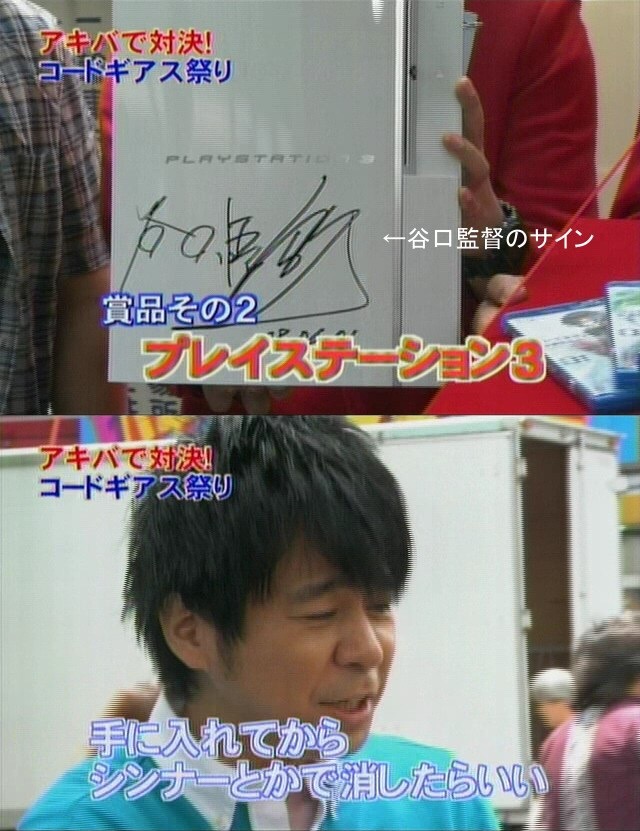 アキバで対決!
コードギアス祭り
PLAYSTATION 3
←谷口監督のサイン
賞品その2
プレイステーション3
アキバで対決!
コードギアス祭り
手に入れてから
シンナーとかで消したらいい